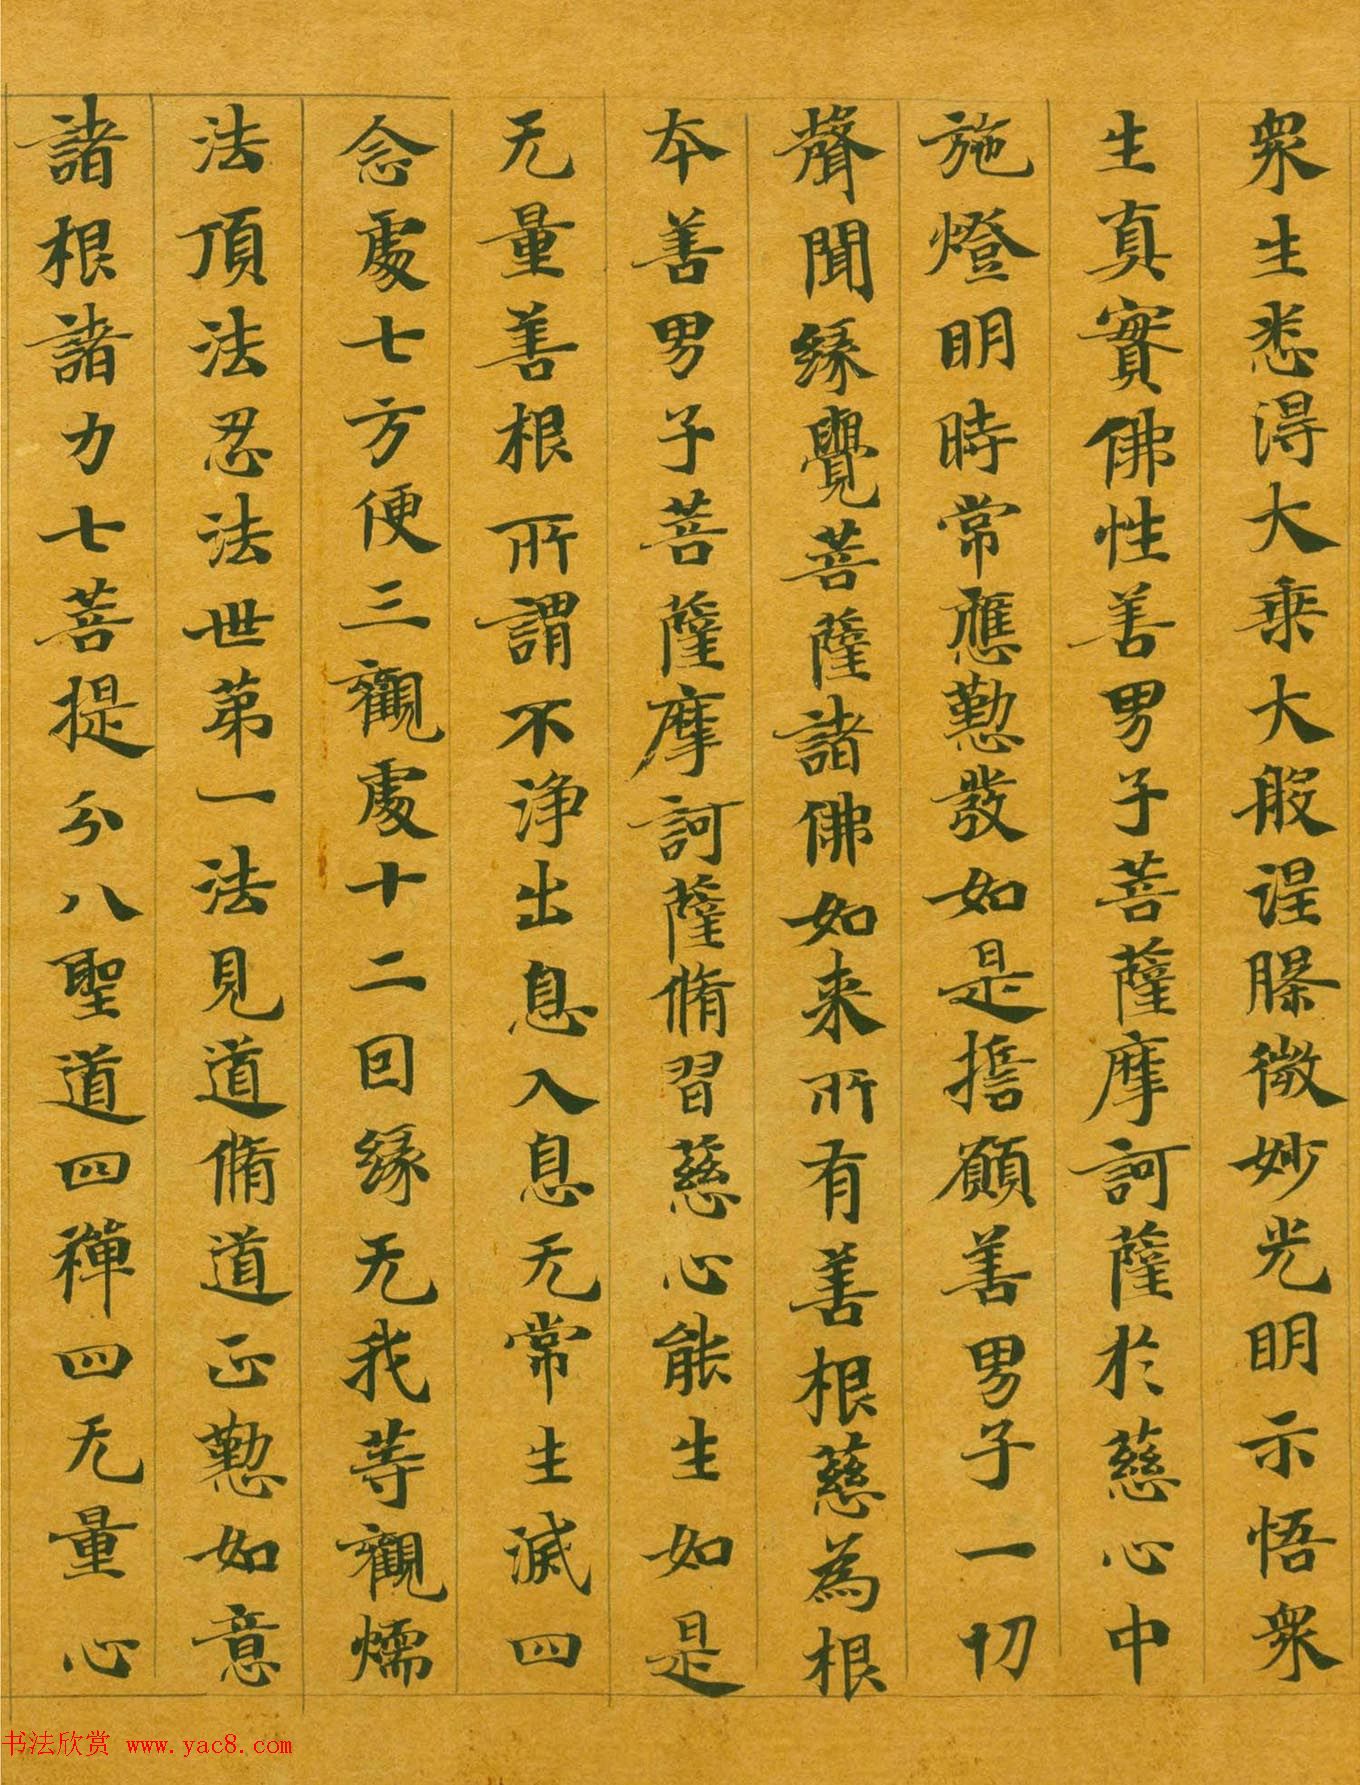 衆生悉得大乗大般涅膝微妙光明示悟衆
生真實佛性善男子菩薩摩訶薩於慈心中
施燈明時常應懃發如是擔願善男子一切
聲聞緣覺菩薩諸佛如来所有善根慈為根
夲善男子菩薩摩訶薩脩習慈心能生如是
无量善根所謂不淨出息入息无常生滅四
念處七方便三觀處十二回緣无我等觀燸
法頂法忍法世苐一法見道脩道正懃如意
諸根諸力七菩提分八聖道四禪四无量心
书法欣赏 www.yac8.com